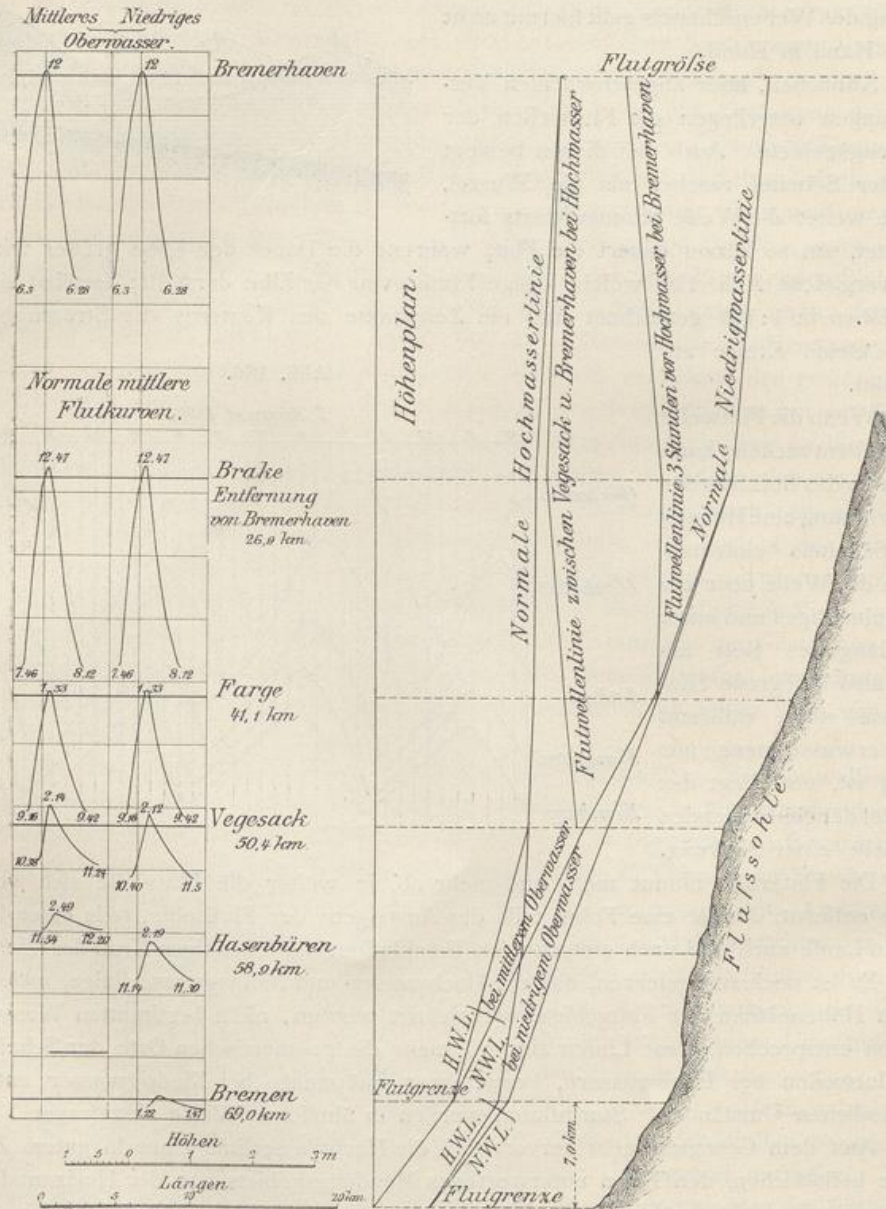 Mittleres Niedriges
Oberwasser.
12 12
Bremerhaven
6.3 6.28 6.3 6.28
Normale mittlere
Flutkurven.
12.47 12.47
Brake
Entfernung
von Bremerhaven
26,9 km
7.46 8.12 7.46 8.12
1.33 1.33
Farge
41,1 km
9.16 9.42 9.16 9.42
2.14 2.12
Vegesack
50,4 km
10.38 11.24
10.40 11.5
2.49
11.54 12.20
2.19
Hasenbüren
58,9 km
11.14 11.30
Bremen
69,0 km
1.22
Höhen
1 5 0 1 2 3 m
Längen
0 5 10 20 km.
Flutgröſse
Höhenplan.
Normale Hochwasserlinie
Flutwellenlinie zwischen Vegesack u. Bremerhaven bei Hochwasser
Flutwellenlinie 3 Stunden vor Hochwasser bei Bremerhaven
Normale Niedrigwasserlinie
H.W.L.)
N.W.L.
bei mittlerem Oberwasser
bei niedrigem Oberwasser
Flutgrenze
H.W.L.
N.W.L.)
7,0 km
Flutgrenze
Fluſssohle